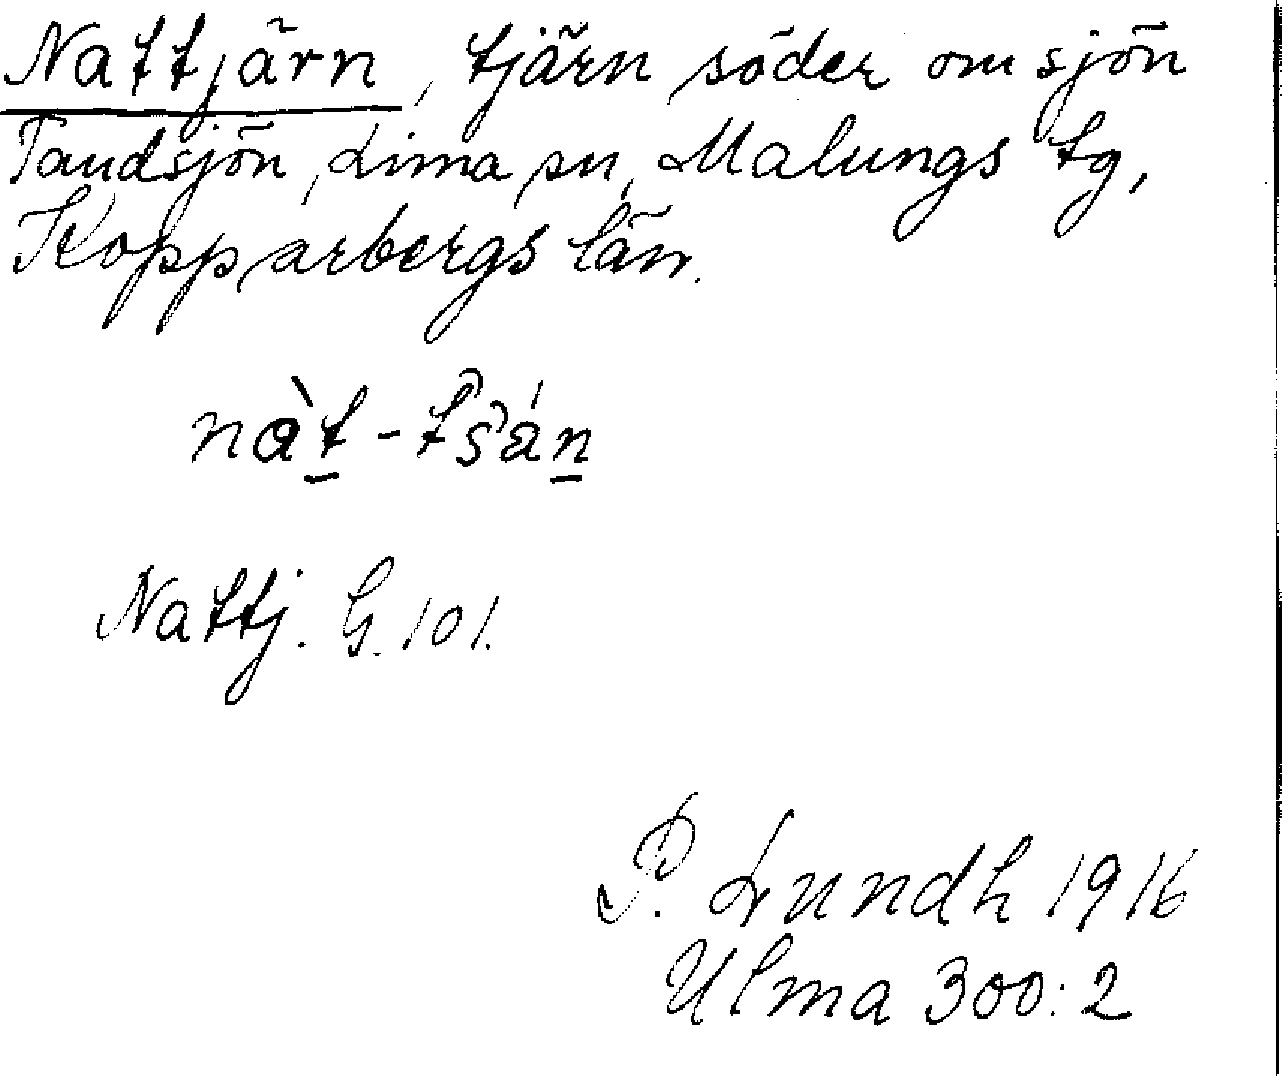 Nattjärn, tjärn söder om sjön
Tandsjön, Lima sn, Malungs tg,
Kopparbergs län.
nàt̲-tsán̲
Nattj. G. 101.
P. Lundh 1916
Ulma 300:2